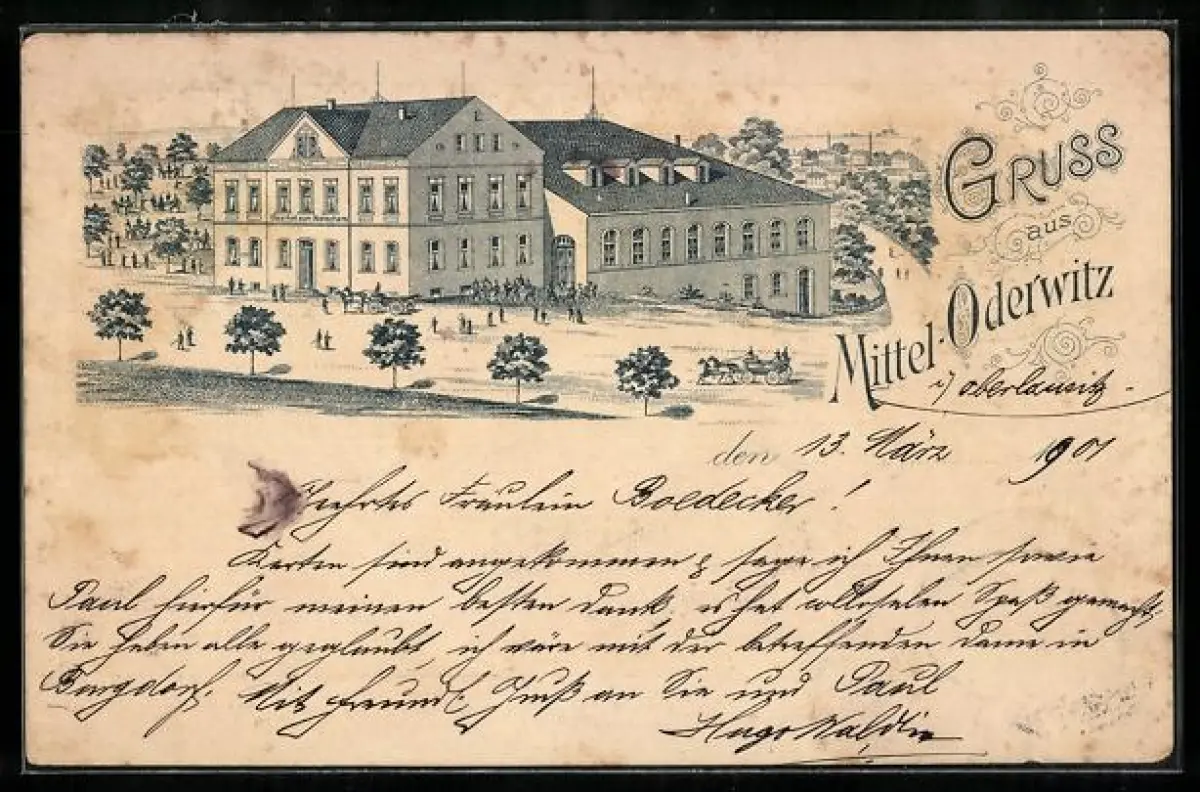 GRUSS
aus
Mittel-Oderwitz
i/ Oberlausitz.
den 13. März 1901
Geehrtes Fräulein Boedecker!
Karten sind angekommen & sage ich Ihnen sowie
Paul hierfür meinen besten Dank, es hat collosalen Spaß gemacht,
Sie haben alle geglaubt, ich wäre mit der betreffenden Dame in
Burgdorf. Mit freundl. Gruß an Sie und Paul
Hugo